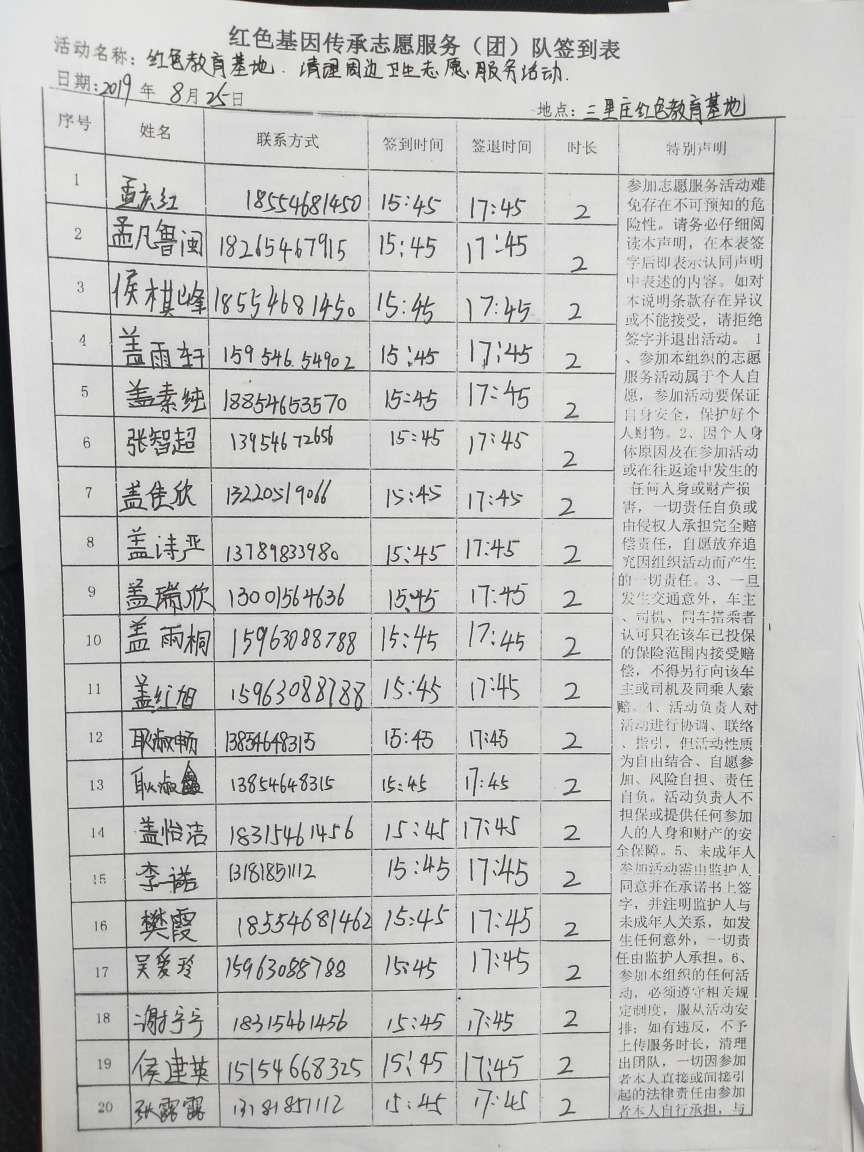 红色基因传承志愿服务（团）队签到表
活动名称：红色教育基地．清理周边卫生志愿服务活动．
日期：2019 年 8 月 25 日
地点：三里庄红色教育基地
序号 姓名 联系方式 签到时间 签退时间 时长 特别声明
1 孟庆红 18554681450 15:45 17:45 2
2 孟凡鲁闽 18265467915 15:45 17:45 2
3 侯棋峰 18554681450 15:45 17:45 2
4 盖雨轩 159546.54902 15:45 17:45 2
5 盖素纯 18854653570 15:45 17:45 2
6 张智超 13954672656 15:45 17:45 2
7 盖佳欣 13220519066 15:45 17:45 2
8 盖诗严 13789833980 15:45 17:45 2
9 盖瑞欣 13001564636 15:45 17:45 2
10 盖雨桐 15963088788 15:45 17:45 2
11 盖红旭 15963088788 15:45 17:45 2
12 耿淑畅 13854648315 15:45 17:45 2
13 耿淑鑫 13854648315 15:45 17:45 2
14 盖怡洁 18315461456 15:45 17:45 2
15 李诺 13181851112 15:45 17:45 2
16 樊霞 18554681462 15:45 17:45 2
17 吴爱玲 15963088788 15:45 17:45 2
18 谢宁宁 18315461456 15:45 17:45 2
19 侯建英 15154668325 15:45 17:45 2
20 张露露 13181851112 15:45 17:45 2
参加志愿服务活动难
免存在不可预知的危
险性。请务必仔细阅
读本声明，在本表签
字后即表示认同声明
中表述的内容。如对
本说明条款存在异议
或不能接受，请拒绝
签字并退出活动。 1
、参加本组织的志愿
服务活动属于个人自
愿，参加活动要保证
自身安全，保护好个
人财物。2、因个人身
体原因及在参加活动
或在往返途中发生的
任何人身或财产损
害，一切责任自负或
由侵权人承担完全赔
偿责任，自愿放弃追
究因组织活动而产生
的一切责任。3、一旦
发生交通意外，车主
、司机、同车搭乘者
认可只在该车已投保
的保险范围内接受赔
偿，不得另行向该车
主或司机及同乘人索
赔。4、活动负责人对
活动进行协调、联络
、指引，但活动性质
为自由结合、自愿参
加、风险自担、责任
自负。活动负责人不
担保或提供任何参加
人的人身和财产的安
全保障。5、未成年人
参加活动需由监护人
同意并在承诺书上签
字，并注明监护人与
未成年人关系，如发
生任何意外，一切责
任由监护人承担。6、
参加本组织的任何活
动，必须遵守相关规
定制度，服从活动安
排；如有违反，不予
上传服务时长，清理
出团队，一切因参加
者本人直接或间接引
起的法律责任由参加
者本人自行承担，与